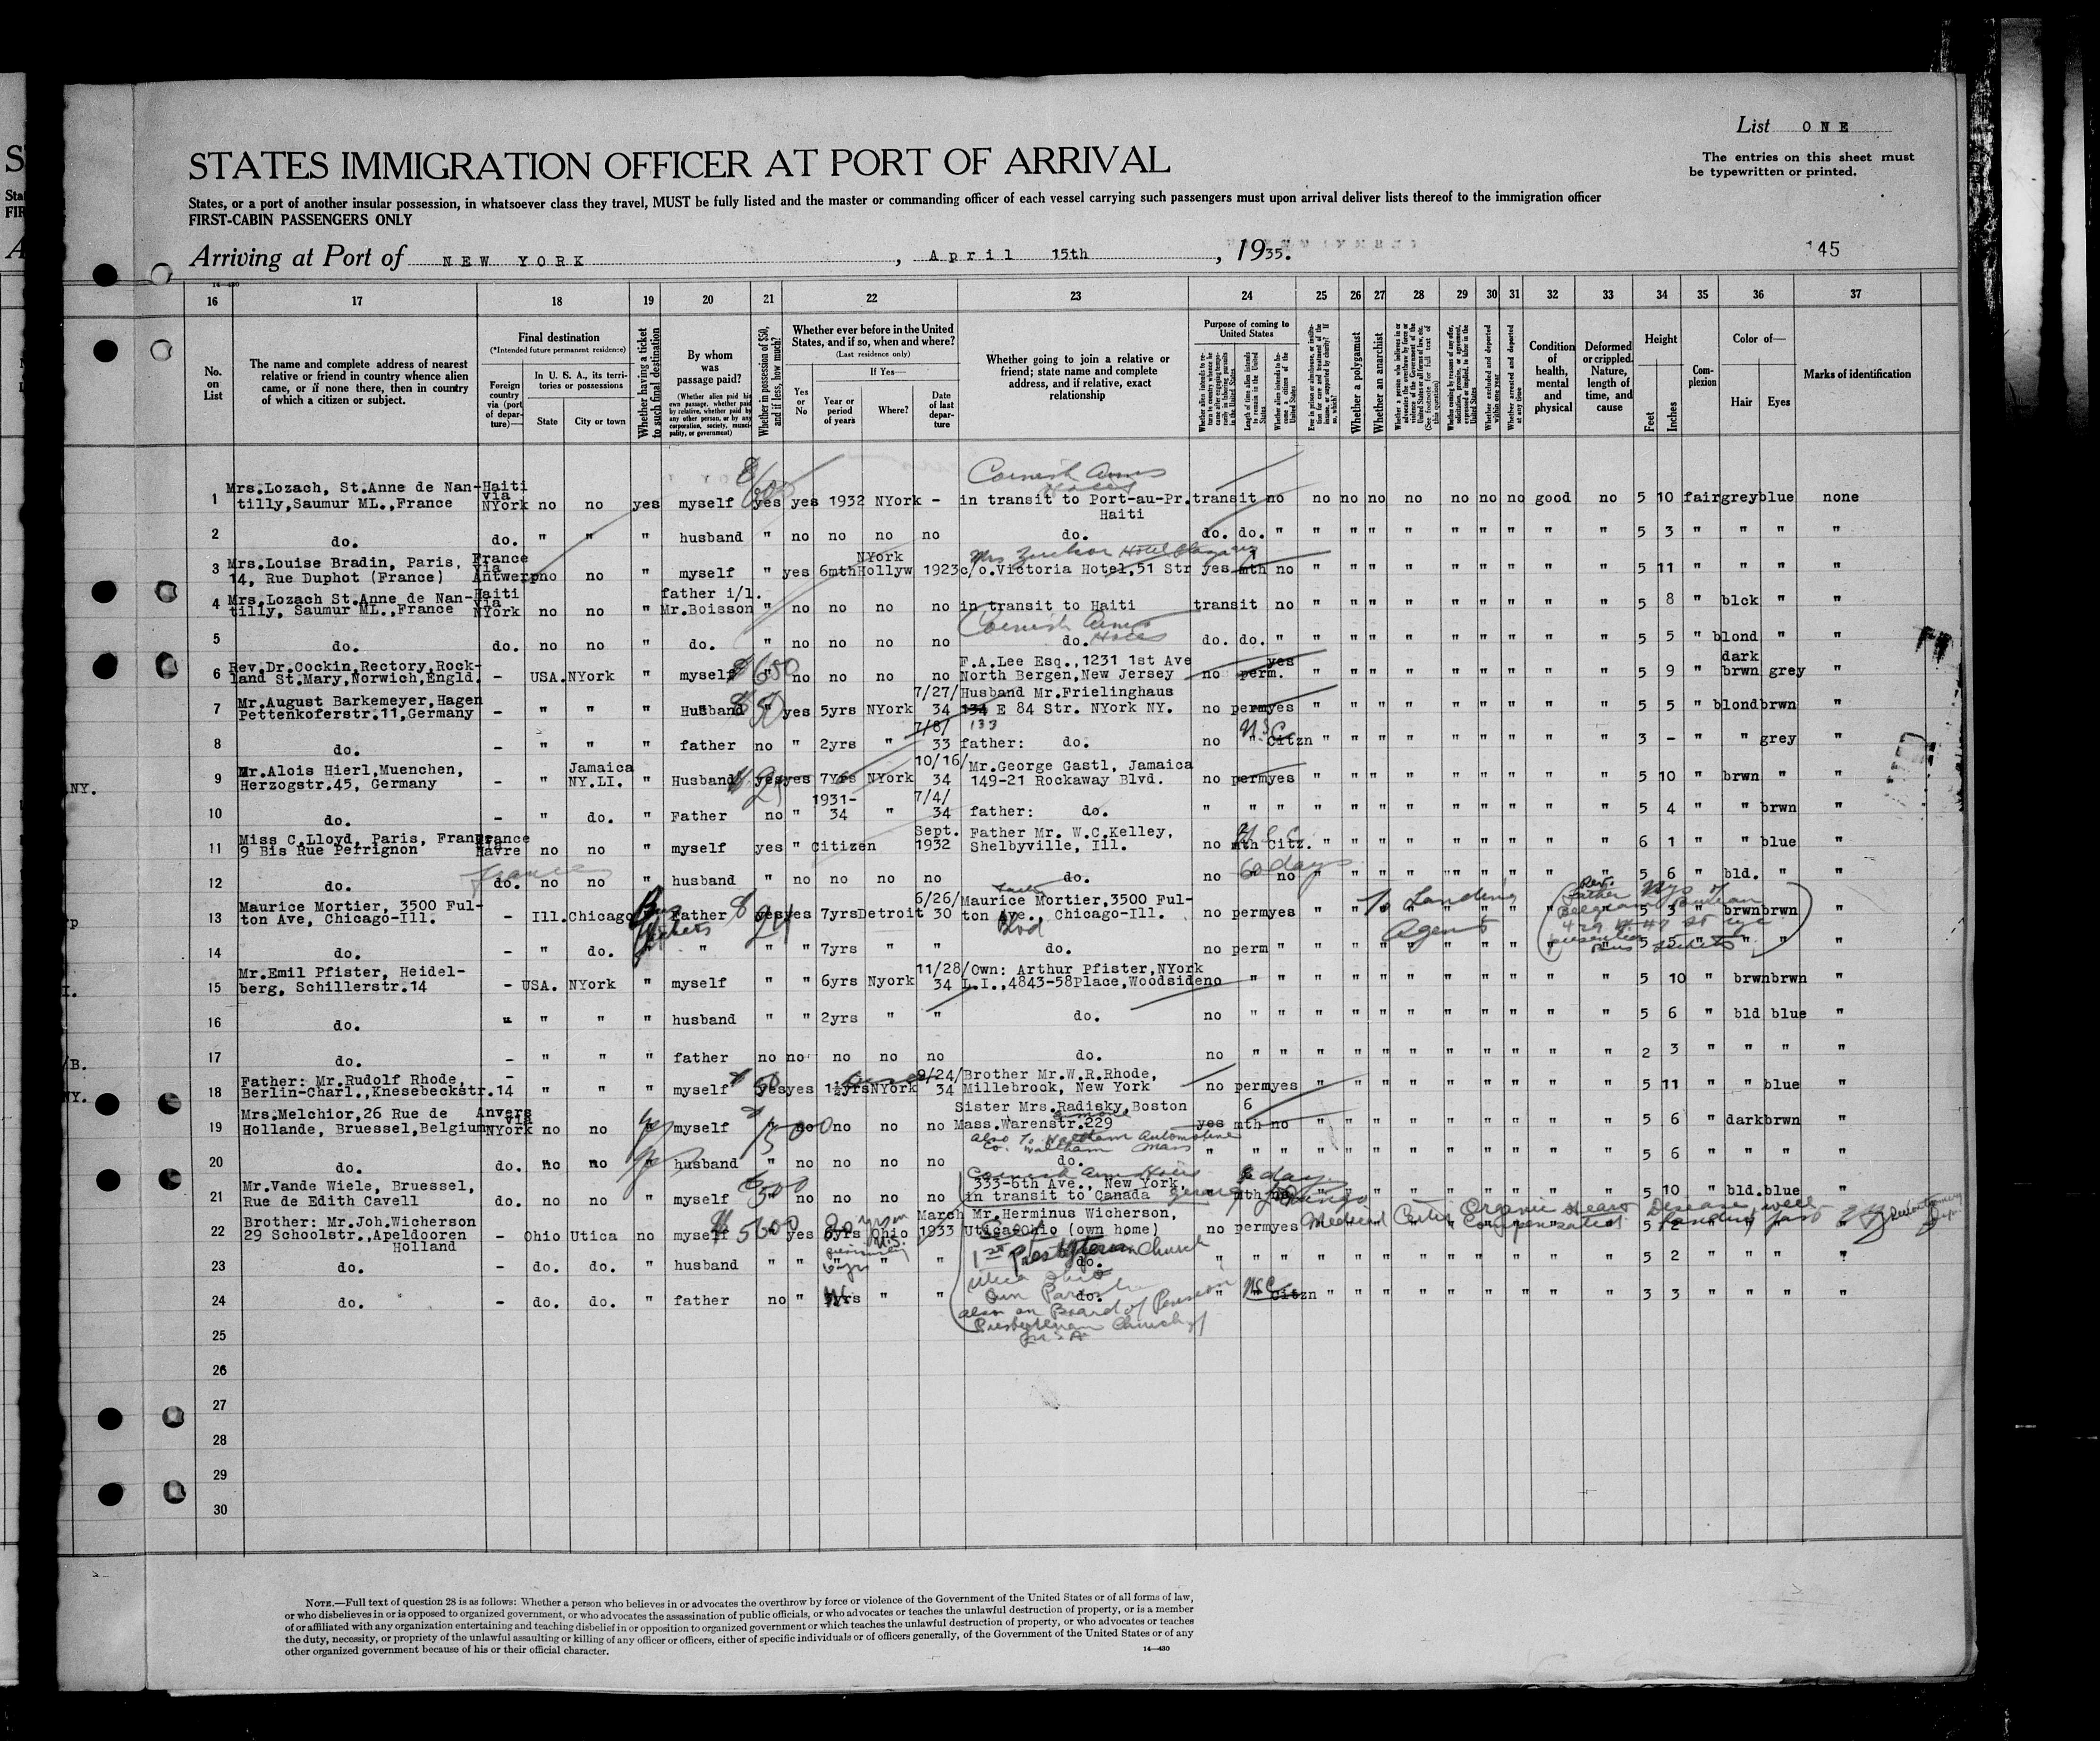 List ONE
STATES IMMIGRATION OFFICER AT PORT OF ARRIVAL
The entries on this sheet must
be typewritten or printed.
States, or a port of another insular possession, in whatsoever class they travel, MUST be fully listed and the master or commanding officer of each vessel carrying such passengers must upon arrival deliver lists thereof to the immigration officer
FIRST-CABIN PASSENGERS ONLY
Arriving at Port of NEW YORK, April 15th, 1935.
145
16 17 18 19 20 21 22 23 24 25 26 27 28 29 30 31 32 33 34 35 36 37
No. on List
The name and complete address of nearest relative or friend in country whence alien came, or if none there, then in country of which a citizen or subject.
Final destination
(*Intended future permanent residence)
Foreign country via (port of departure)—
In U. S. A., its territories or possessions
State
City or town
Whether having a ticket to such final destination
By whom was passage paid?
(Whether alien paid his own passage, whether paid by relative, whether paid by any other person, or by any corporation, society, municipality, or government)
Whether in possession of $50, and if less, how much?
Whether ever before in the United States, and if so, when and where?
(Last residence only)
Yes or No
If Yes—
Year or period of years
Where?
Date of last departure
Whether going to join a relative or friend; state name and complete address, and if relative, exact relationship
Purpose of coming to United States
Whether a polygamist
Whether an anarchist
Condition of health, mental and physical
Deformed or crippled. Nature, length of time, and cause
Height
Feet
Inches
Complexion
Color of—
Hair
Eyes
Marks of identification
1 Mrs.Lozach, St.Anne de Nantilly,Saumur ML.,France Haiti via NYork no no yes myself yes yes 1932 NYork - in transit to Port-au-Pr. Haiti transit no no no no no no no no good no 5 10 fair grey blue none
Cornish Arms Hotel
2 do. do. " " " husband " no no no no do. do. do. " " " " " " " " " " 5 3 " " " "
3 Mrs.Louise Bradin, Paris, 14, Rue Duphot (France) France via Antwerp no no " myself " yes 6mth NYork Hollyw 1923 c/o.Victoria Hotel,51 Str yes mth no " " " " " " " " " 5 11 " " " "
4 Mrs.Lozach St.Anne de Nantilly, Saumur ML.,France Haiti via NYork no no " father i/l. Mr.Boisson " no no no no in transit to Haiti transit no " " " " " " " " " 5 8 " blck " "
Cornish Arms Hotel
5 do. do. no no " do. " no no no no do. do. do. " " " " " " " " " " 5 5 " blond " "
6 Rev.Dr.Cockin,Rectory,Rockland St.Mary,Norwich,Engld. - USA. NYork " myself " no no no no F.A.Lee Esq.,1231 1st Ave North Bergen,New Jersey no perm. yes " " " " " " " " " 5 9 " dark brwn grey "
7 Mr.August Barkemeyer,Hagen Pettenkoferstr.11,Germany - " " " Husband " yes 5yrs NYork 7/27/34 Husband Mr.Frielinghaus 134 E 84 Str. NYork NY. no perm yes " " " " " " " " " 5 5 " blond brwn "
133
8 do. - " " " father no " 2yrs " 7/8/33 father: do. no " Citzn " " " " " " " " " 3 - " " grey "
9 Mr.Alois Hierl,Muenchen, Herzogstr.45, Germany - " Jamaica NY.LI. " Husband yes yes 7Yrs NYork 10/16/34 Mr.George Gastl, Jamaica 149-21 Rockaway Blvd. no perm yes " " " " " " " " " 5 10 " brwn " "
10 do. - " do. " Father no " 1931-34 " 7/4/34 father: do. " " " " " " " " " " " " 5 4 " " brwn "
11 Miss C.Lloyd, Paris, France 9 Bis Rue Perrignon France via Havre no no " myself yes " Citizen Sept. 1932 Father Mr. W.C.Kelley, Shelbyville, Ill. no mth Citz. " " " " " " " " " 6 1 " " blue "
12 do. do. no no " husband " no no no no do. no 60 days no " " " " " " " " " 5 6 " bld. " "
France
13 Maurice Mortier, 3500 Fulton Ave, Chicago-Ill. - Ill. Chicago Father yes yes 7yrs Detroit 6/26/30 Maurice Mortier,3500 Fulton Ave., Chicago-Ill. no perm yes " " " " " " " 5 3 " brwn brwn
Blvd
To Landing Agent
14 do. - " do. " " " " 7yrs " " do. no perm " " " " " " " " " " 5 5 " " "
15 Mr.Emil Pfister, Heidelberg, Schillerstr.14 - USA. NYork " myself " " 6yrs Nyork 11/28/34 Own: Arthur Pfister,NYork L.I.,4843-58Place,Woodside no " " " " " " " " " " " 5 10 " brwn brwn "
16 do. - " " " husband " " 2yrs " " do. no " " " " " " " " " " " 5 6 " bld blue "
17 do. - " " " father no no no no no do. no " " " " " " " " " " " 2 3 " " " "
18 Father: Mr.Rudolf Rhode, Berlin-Charl.,Knesebeckstr.14 - " " " myself yes yes 1½yrs NYork 9/24/34 Brother Mr.W.R.Rhode, Millebrook, New York no perm yes " " " " " " " " " 5 11 " " blue "
19 Mrs.Melchior,26 Rue de Hollande, Bruessel,Belgium Anvers via NYork no no " myself " no no no no Sister Mrs.Radisky,Boston Mass.Warenstr.229 yes 6 mth no " " " " " " " " " 5 6 " dark brwn "
also To Waltham Automotive Co. Waltham Mass
20 do. do. no no " husband " no no no no do. " " " " " " " " " " " " 5 6 " " " "
21 Mr.Vande Wiele, Bruessel, Rue de Edith Cavell do. no no " myself " no no no no 333-6th Ave., New York, in transit to Canada " mth no " " " " " " " " " 5 10 " bld. blue "
22 Brother: Mr.Joh.Wicherson 29 Schoolstr.,Apeldooren Holland - Ohio Utica no myself yes 6yrs Ohio March 1933 Mr.Herminus Wicherson, Utica-Ohio (own home) no perm yes 5 2
Organic Heart Disease, well Compensated.
23 do. - do. do. " husband " " " " " do. " " " " " " " " " " " " 5 2 " " " "
1st Presbyterian Church
Utica Ohio
Own Parish
also on Board of Pension
Presbyterian Church of
U.S.A
24 do. - do. do. " father no " yrs " " do. " " Citzn " " " " " " " " " 3 3 " " " "
25
26
27
28
29
30
NOTE.—Full text of question 28 is as follows: Whether a person who believes in or advocates the overthrow by force or violence of the Government of the United States or of all forms of law,
or who disbelieves in or is opposed to organized government, or who advocates the assassination of public officials, or who advocates or teaches the unlawful destruction of property, or is a member
of or affiliated with any organization entertaining and teaching disbelief in or opposition to organized government or which teaches the unlawful destruction of property, or who advocates or teaches
the duty, necessity, or propriety of the unlawful assaulting or killing of any officer or officers, either of specific individuals or of officers generally, of the Government of the United States or of any
other organized government because of his or their official character.
14—430